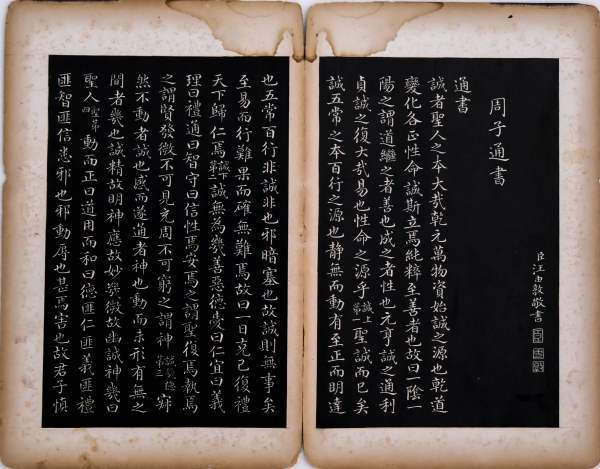 臣汪由敦敬書
周子通書
通書
誠者聖人之本大哉乾元萬物資始誠之源也乾道
變化各正性命誠斯立焉純粹至善者也故曰一陰一
陽之謂道繼之者善也成之者性也元亨誠之通利
貞誠之復大哉易也性命之源乎誠上第一聖誠而已矣
誠五常之本百行之源也静無而動有至正而明達
也五常百行非誠非也邪暗塞也故誠則無事矣
至易而行難果而確無難焉故曰一日克己復禮
天下歸仁焉誠下第二誠無為幾善惡德愛曰仁宜曰義
理曰禮通曰智守曰信性焉安焉之謂聖復焉執焉
之謂賢發微不可見充周不可窮之謂神誠幾德第三寂
然不動者誠也感而遂通者神也動而未形有無之
間者幾也誠精故明神應故妙幾微故幽誠神幾曰
聖人聖第四動而正曰道用而和曰德匪仁匪義匪禮
匪智匪信悉邪也邪動辱也甚焉害也故君子慎